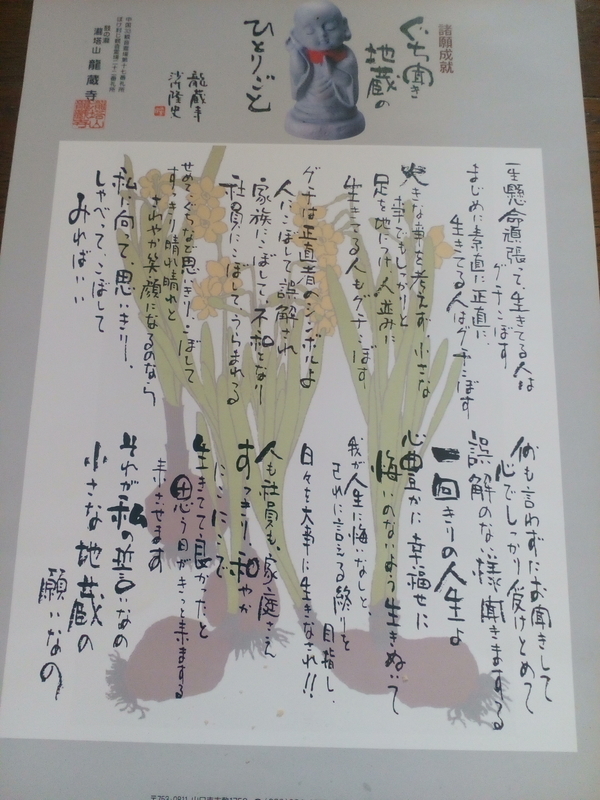 諸願成就
ぐち聞き
地蔵の
ひとりごと
龍蔵寺
中国三十三観音霊場第十七番札所
鼓の滝
瀧塔山 龍蔵寺
一生懸命頑張って、生きてる人は
グチこぼす
まじめに素直に正直に
生きてる人はグチこぼす
大きな事を考えず、小さな
事でもしっかりと
足を地につけ人並みに
生きてる人もグチこぼす
グチは正直者のシンボルよ
人にこぼして誤解され
家族にこぼして不和となり
社員にこぼしてうらまれる
せめてぐちなど思いきりこぼして
すっきり晴れ晴れと
さわやか笑顔になるのなら
私に向って、思いきり、
しゃべって、こぼして
みればいい
何も言わずにお聞きして
心でしっかり受けとめて
誤解のない様聞きまする
一回きりの人生よ
心豊かに幸福せに
悔いのないよう生きぬいて
我が人生に悔いなしと、
己れに言える終りを
目指し、
日々を大事に生きなされ!!
人も社員も、家庭さえ
すっきり和やか
にこにこで
生きてて良かったと
思う日がきっと来まする
来させます
それが私の誓いなの
小さな地蔵の
願いなの